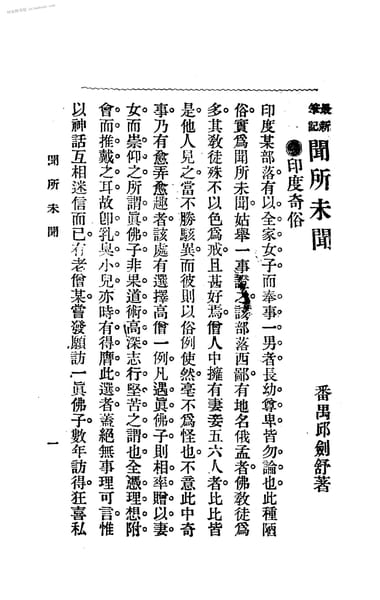 最新
筆記
聞所未聞
番禺邱劍舒著
●印度奇俗
印度某部落有以全家女子而奉事一男者長幼尊卑皆勿論也此種陋
俗實爲聞所未聞姑舉一事證之該部落西鄙有地名俄孟者佛敎徒爲
多其敎徒殊不以色爲戒且甚好焉僧人中擁有妻妾五六人者比比皆
是他人見之當不勝駭異而彼則以俗例使然毫不爲怪也不意此中奇
事乃有愈弄愈趣者該處有選擇高僧一例凡遇眞佛子則相率贈以妻
女而崇仰之所謂眞佛子非果道術高深志行堅苦之謂也全憑理想附
會而推戴之耳故卽乳臭小兒亦時有得膺此選者蓋絕無事理可言惟
以神話互相迷信而已有老僧某嘗發願訪一眞佛子數年訪得狂喜私
聞所未聞
一